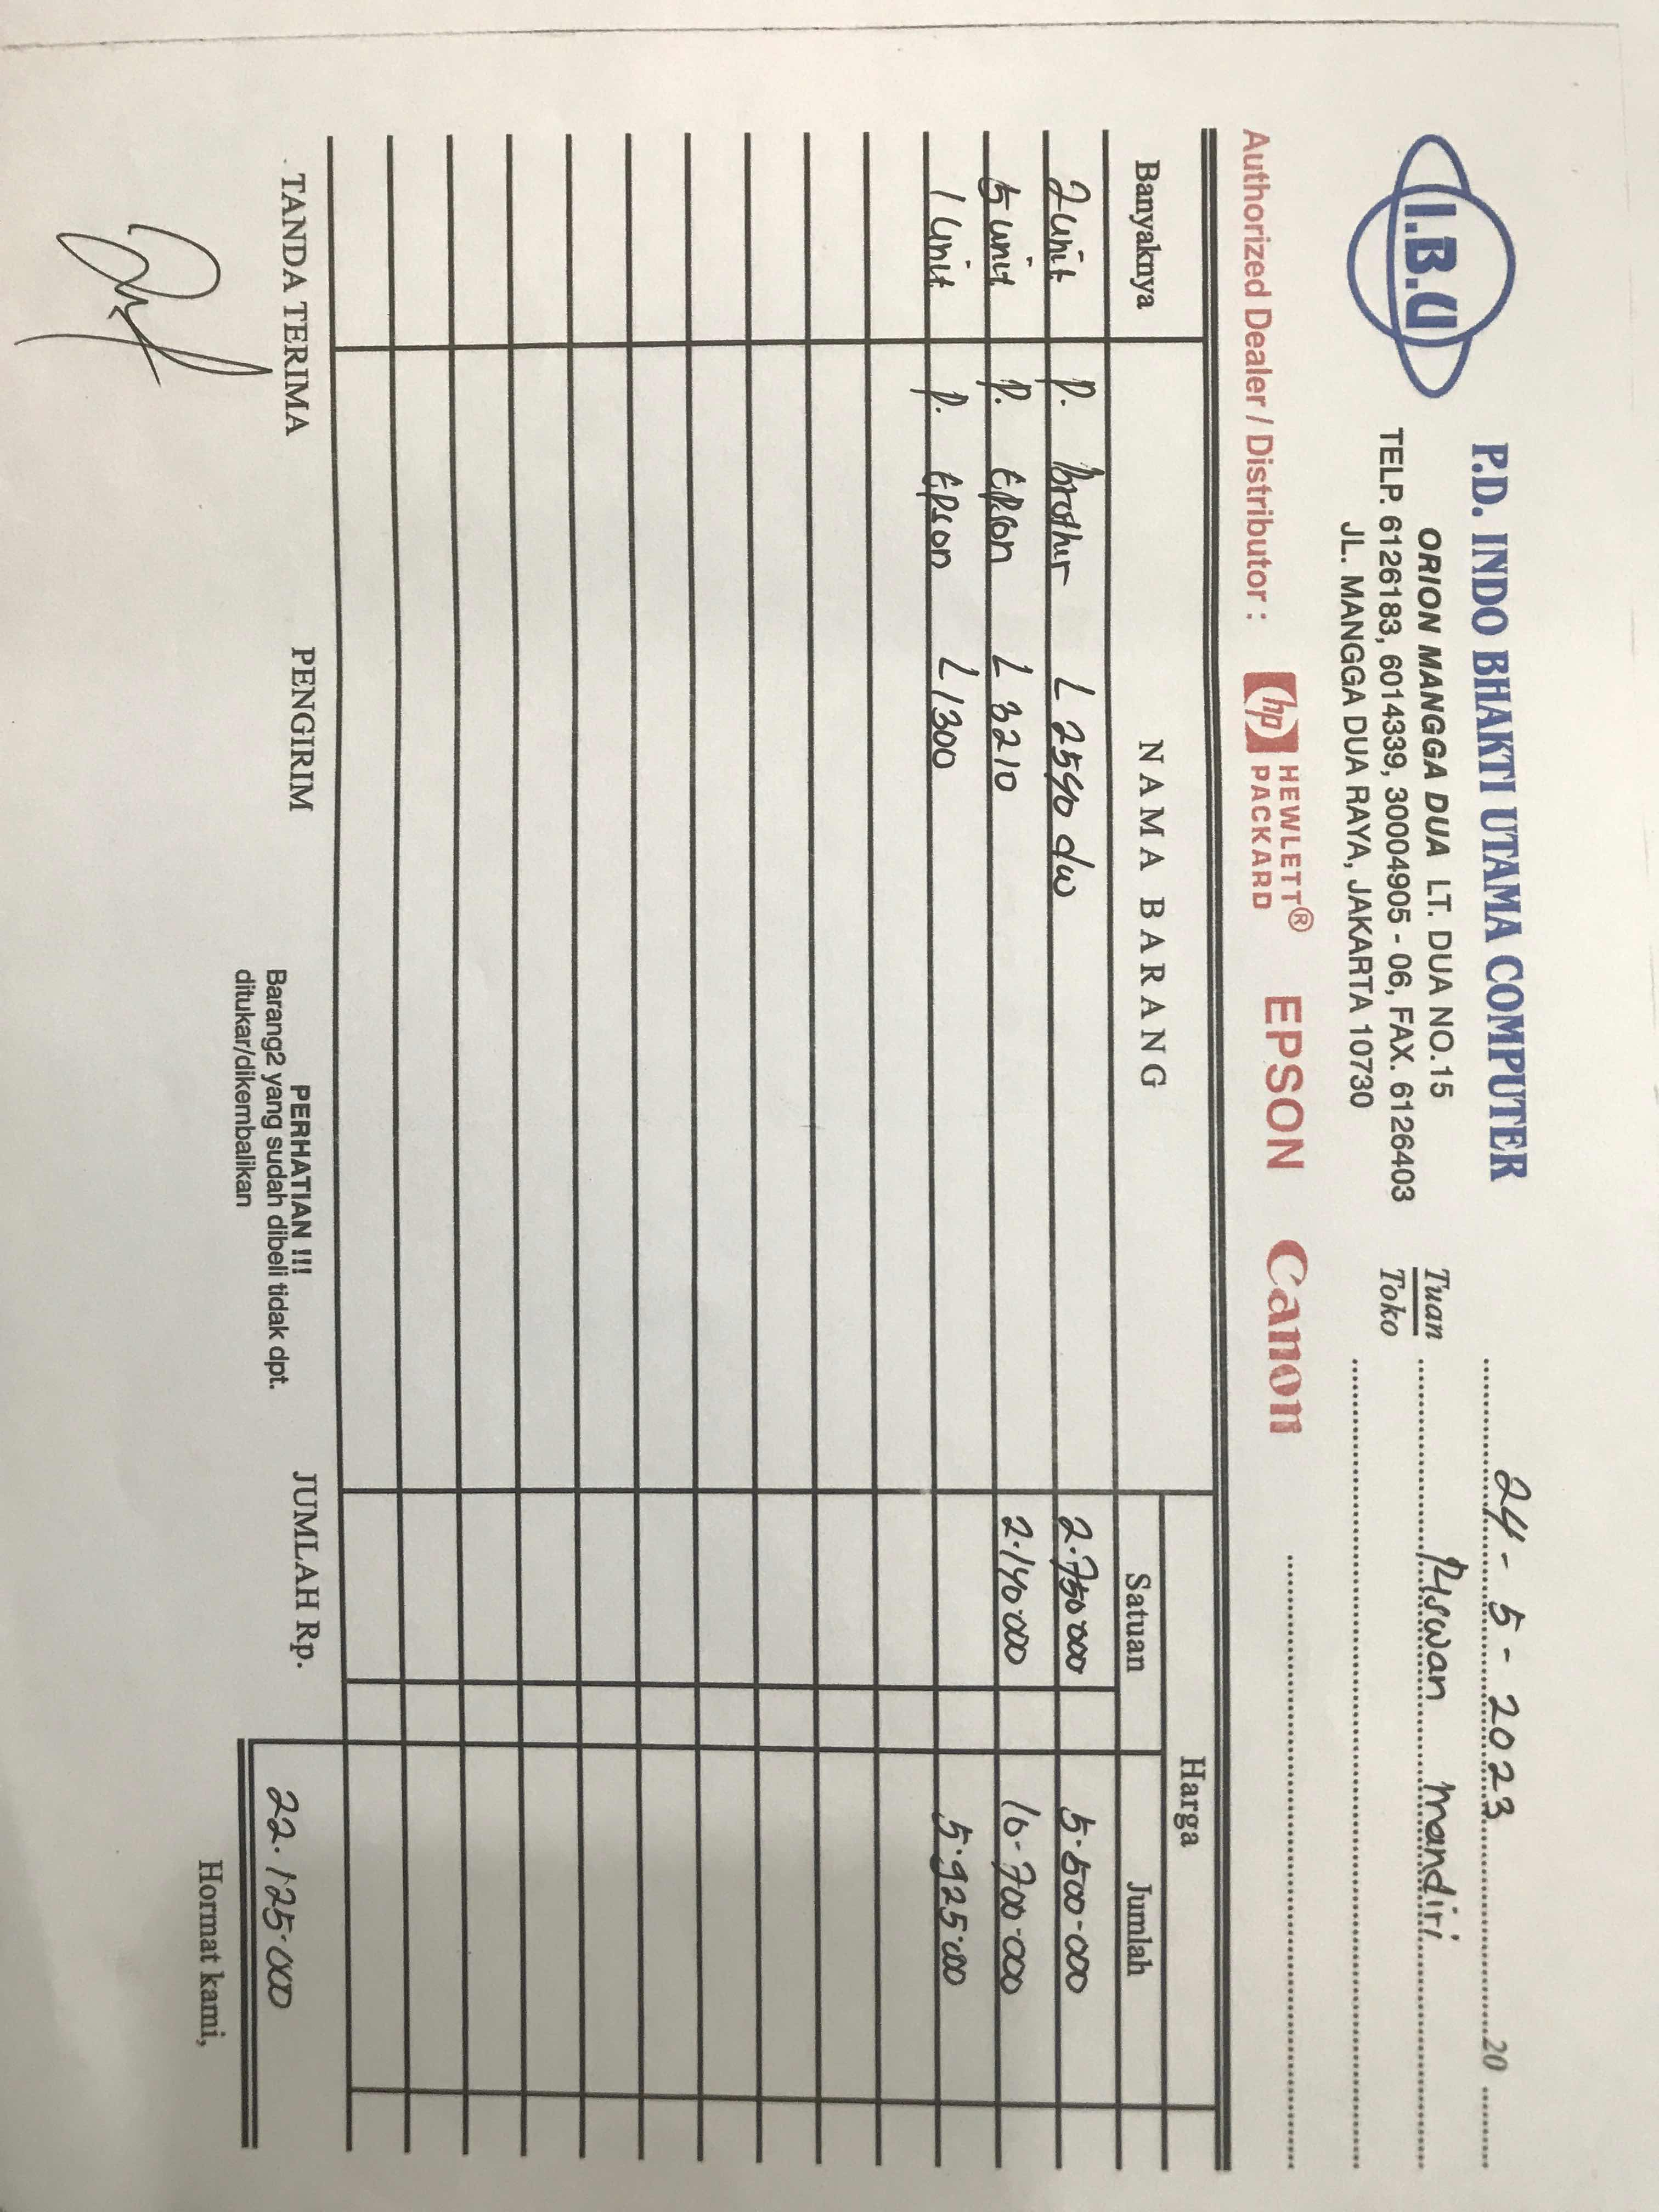 I.B.U
P.D. INDO BHAKTI UTAMA COMPUTER
ORION MANGGA DUA LT. DUA NO.15
TELP. 6126183, 6014339, 30004905 - 06, FAX. 6126403
JL. MANGGA DUA RAYA, JAKARTA 10730
24 - 5 - 2023 20
Tuan
Toko
mandiri
Authorized Dealer / Distributor : hp HEWLETT® PACKARD EPSON Canon
Banyaknya NAMA BARANG Harga
Satuan Jumlah
2 unit P. Brother L 2540 dw 2.750.000 5.500.000
5 unit P. Epson L 3210 2.140.000 10.700.000
1 unit P. Epson L1300 5.925.000
TANDA TERIMA PENGIRIM PERHATIAN !!! JUMLAH Rp. 22.125.000
Barang2 yang sudah dibeli tidak dpt.
ditukar/dikembalikan
Hormat kami,